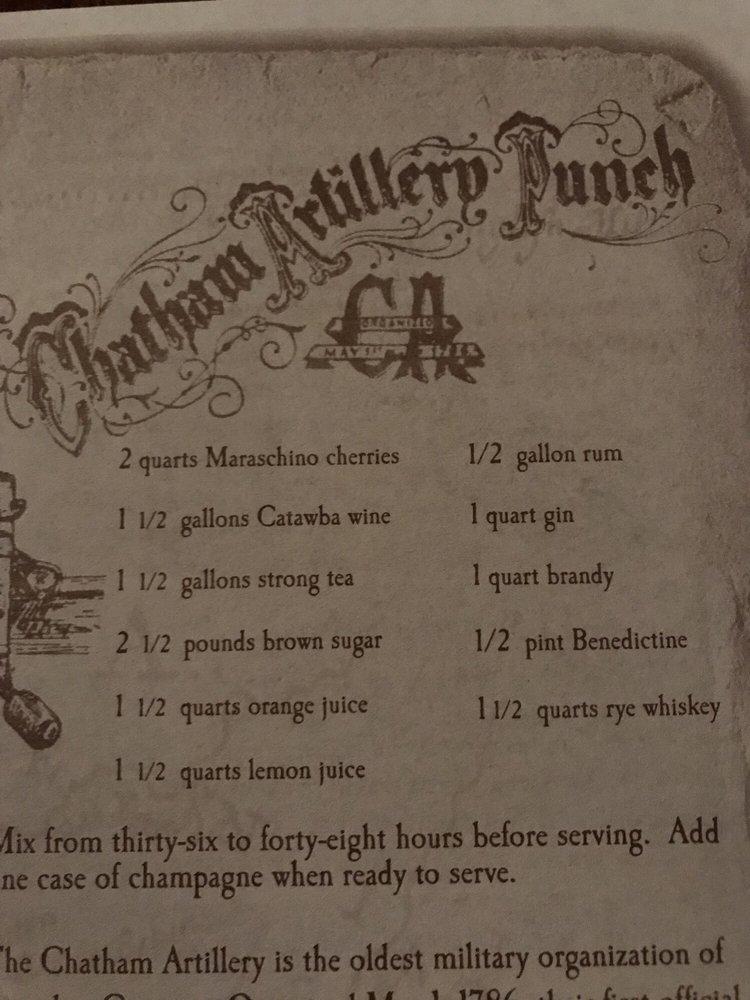 Chatham Artillery Punch
CA
ORGANIZED
MAY 1ST 1786
2 quarts Maraschino cherries
1 1/2 gallons Catawba wine
1 1/2 gallons strong tea
2 1/2 pounds brown sugar
1 1/2 quarts orange juice
1 1/2 quarts lemon juice
1/2 gallon rum
1 quart gin
1 quart brandy
1/2 pint Benedictine
1 1/2 quarts rye whiskey
Mix from thirty-six to forty-eight hours before serving. Add
ne case of champagne when ready to serve.
The Chatham Artillery is the oldest military organization of
1786, their first official